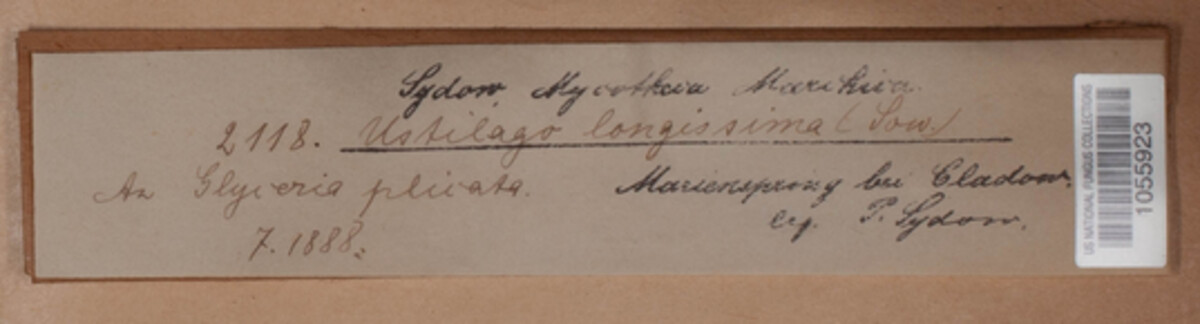 Sydow, Mycotheca Marchica.
2118. Ustilago longissima (Sow.)
An Glyceria plicata. Marienspring bei Cladow.
7. 1888. leg. P. Sydow.
US NATIONAL FUNGUS COLLECTIONS
1055923